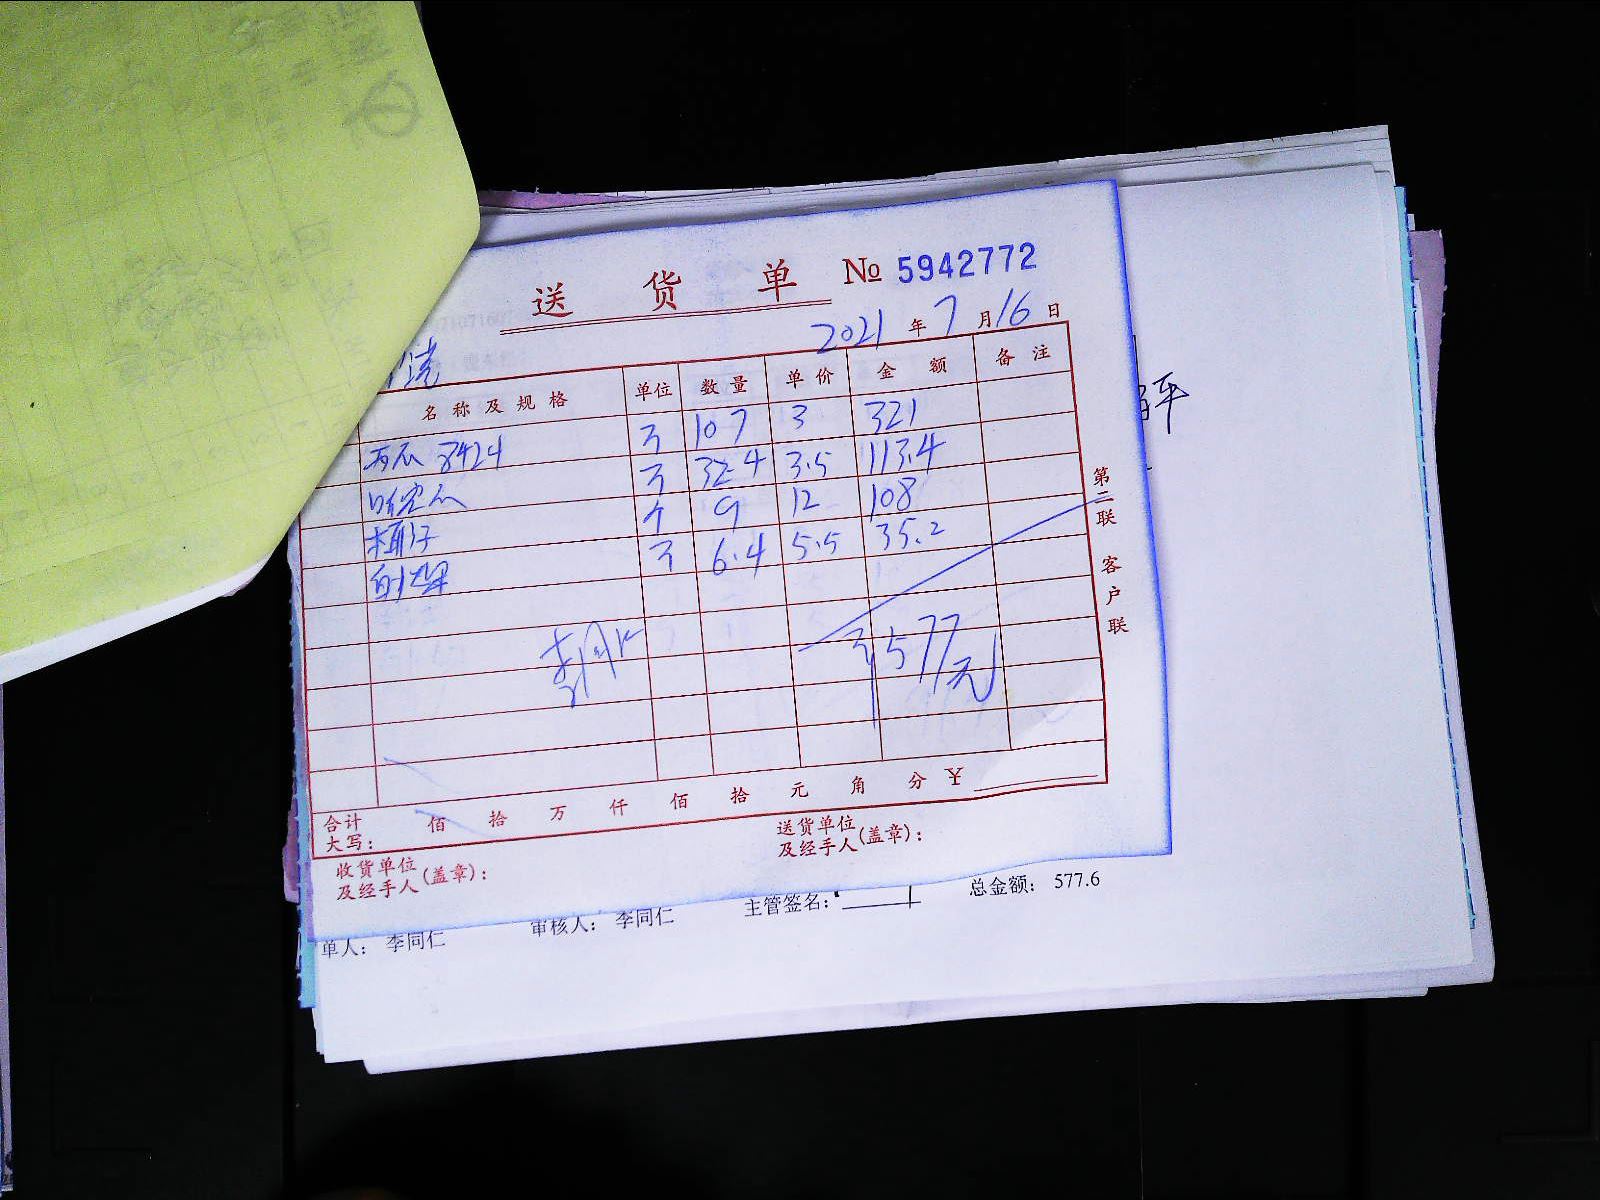 送 货 单 № 5942772
2021 年 7 月 16 日
名 称 及 规 格 单位 数 量 单 价 金 额 备 注
西瓜 8424 斤 107 3 321
哈密瓜 斤 32.4 3.5 113.4
个 9 12 108
斤 6.4 5.5 35.2
李同仁
577元
合计
大写: 佰 拾 万 仟 佰 拾 元 角 分 ¥
收货单位
及经手人(盖章):
送货单位
及经手人(盖章):
第二联 客户联
单人: 李同仁 审核人: 李同仁 主管签名: 总金额: 577.6
平